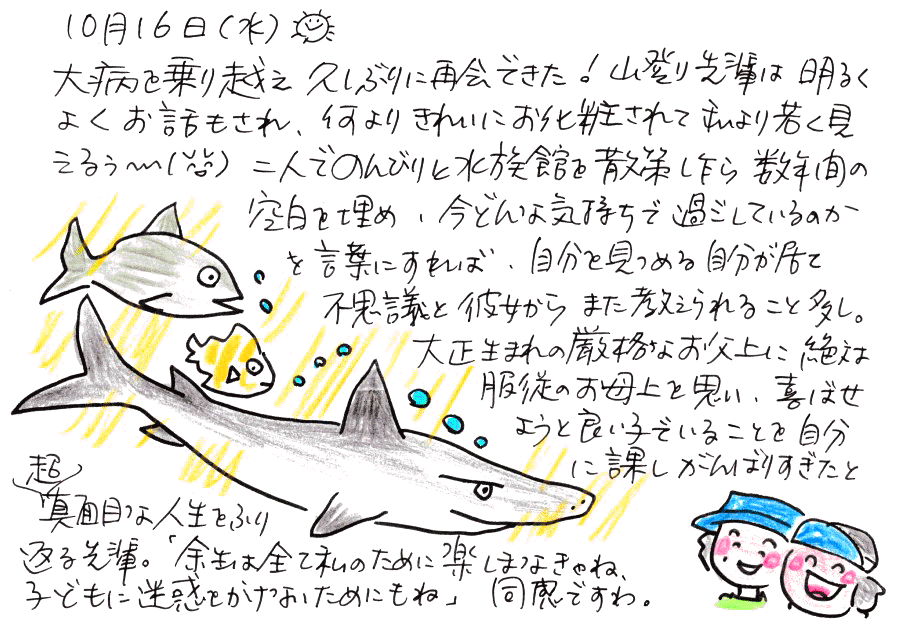 10月16日(水)
大病を乗り越え 久しぶりに再会できた! 山登り先輩は 明るく
よく お話もされ、何より きれいにお化粧されて 私より若く見
えるぅ〜〜(笑) 二人でのんびりと水族館を散策しながら 数年間の
空白を埋め、今どんな気持ちで 過ごしているのか
を言葉にすれば、自分を見つめる自分が居て
不思議と彼女から また教えられること多し。
大正生まれの厳格なお父上に 絶対
服従のお母上を思い、喜ばせ
ようと良い子でいることを自分
に課し がんばりすぎたと
超
真面目な人生をふり
返る先輩。「余生は全て私のために楽しまなきゃね、
子どもに迷惑をかけないためにもね」 同感ですわ。